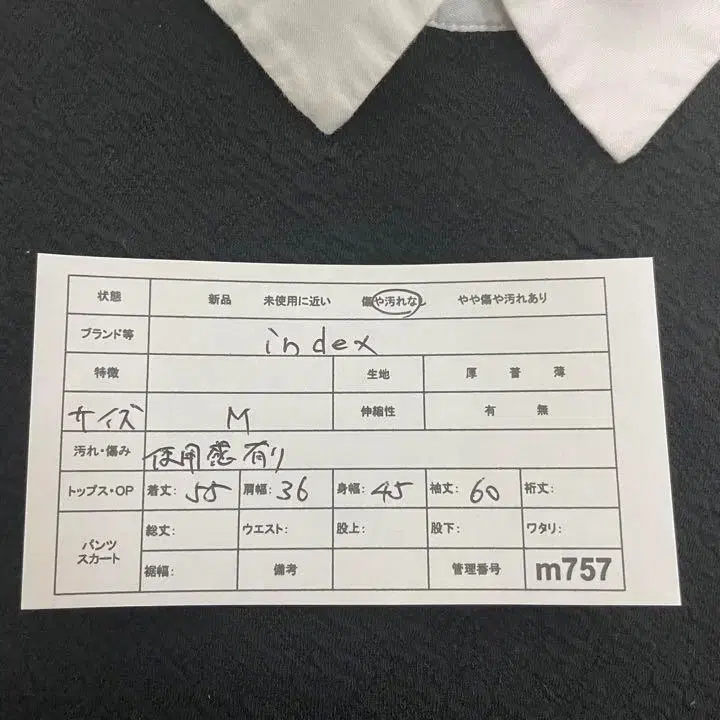 状態 新品 未使用に近い 傷や汚れなし やや傷や汚れあり
ブランド等 index
特徴 生地 厚 普 薄
サイズ M 伸縮性 有 無
汚れ・傷み 使用感有り
トップス・OP 着丈: 55 肩幅: 36 身幅: 45 袖丈: 60 裄丈:
パンツ スカート 総丈: ウエスト: 股上: 股下: ワタリ:
裾幅: 備考 管理番号 m757